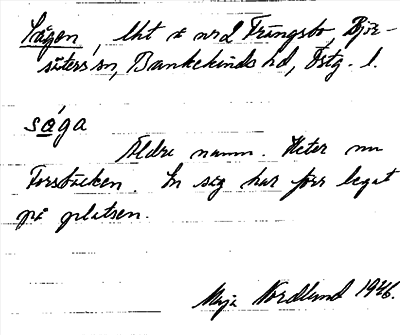 Sågen lht o vid Fringsbo, Björ-
säters sn, Bankekinds hd, Östg. l.
såga
Äldre namn. Heter nu
Forsbacken. En såg har förr legat
på platsen.
Maja Nordlund 1946.